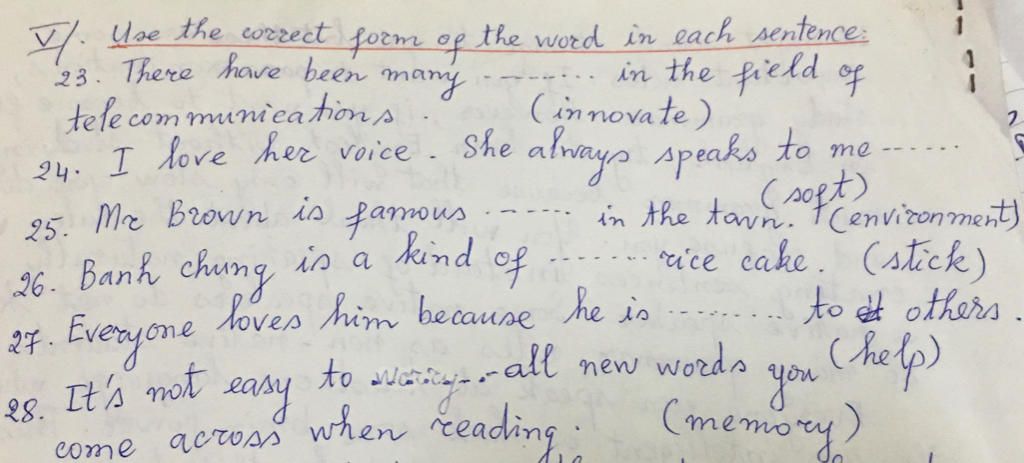 V/. Use the correct form of the word in each sentence:
23. There have been many ........ in the field of
telecommunications. (innovate)
24. I love her voice. She always speaks to me ......
(soft)
25. Mr Brown is famous ...... in the town. (environment)
26. Banh chung is a kind of ........ rice cake. (stick)
27. Everyone loves him because he is ......... to others.
(help)
28. It's not easy to ...... all new words you
come across when reading. (memory)